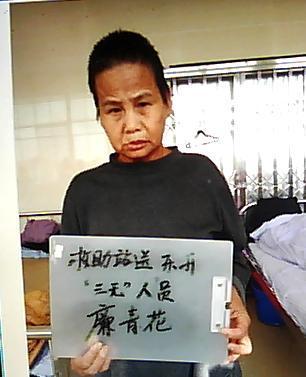 救助站送 东升
"三无"人员
廉青花